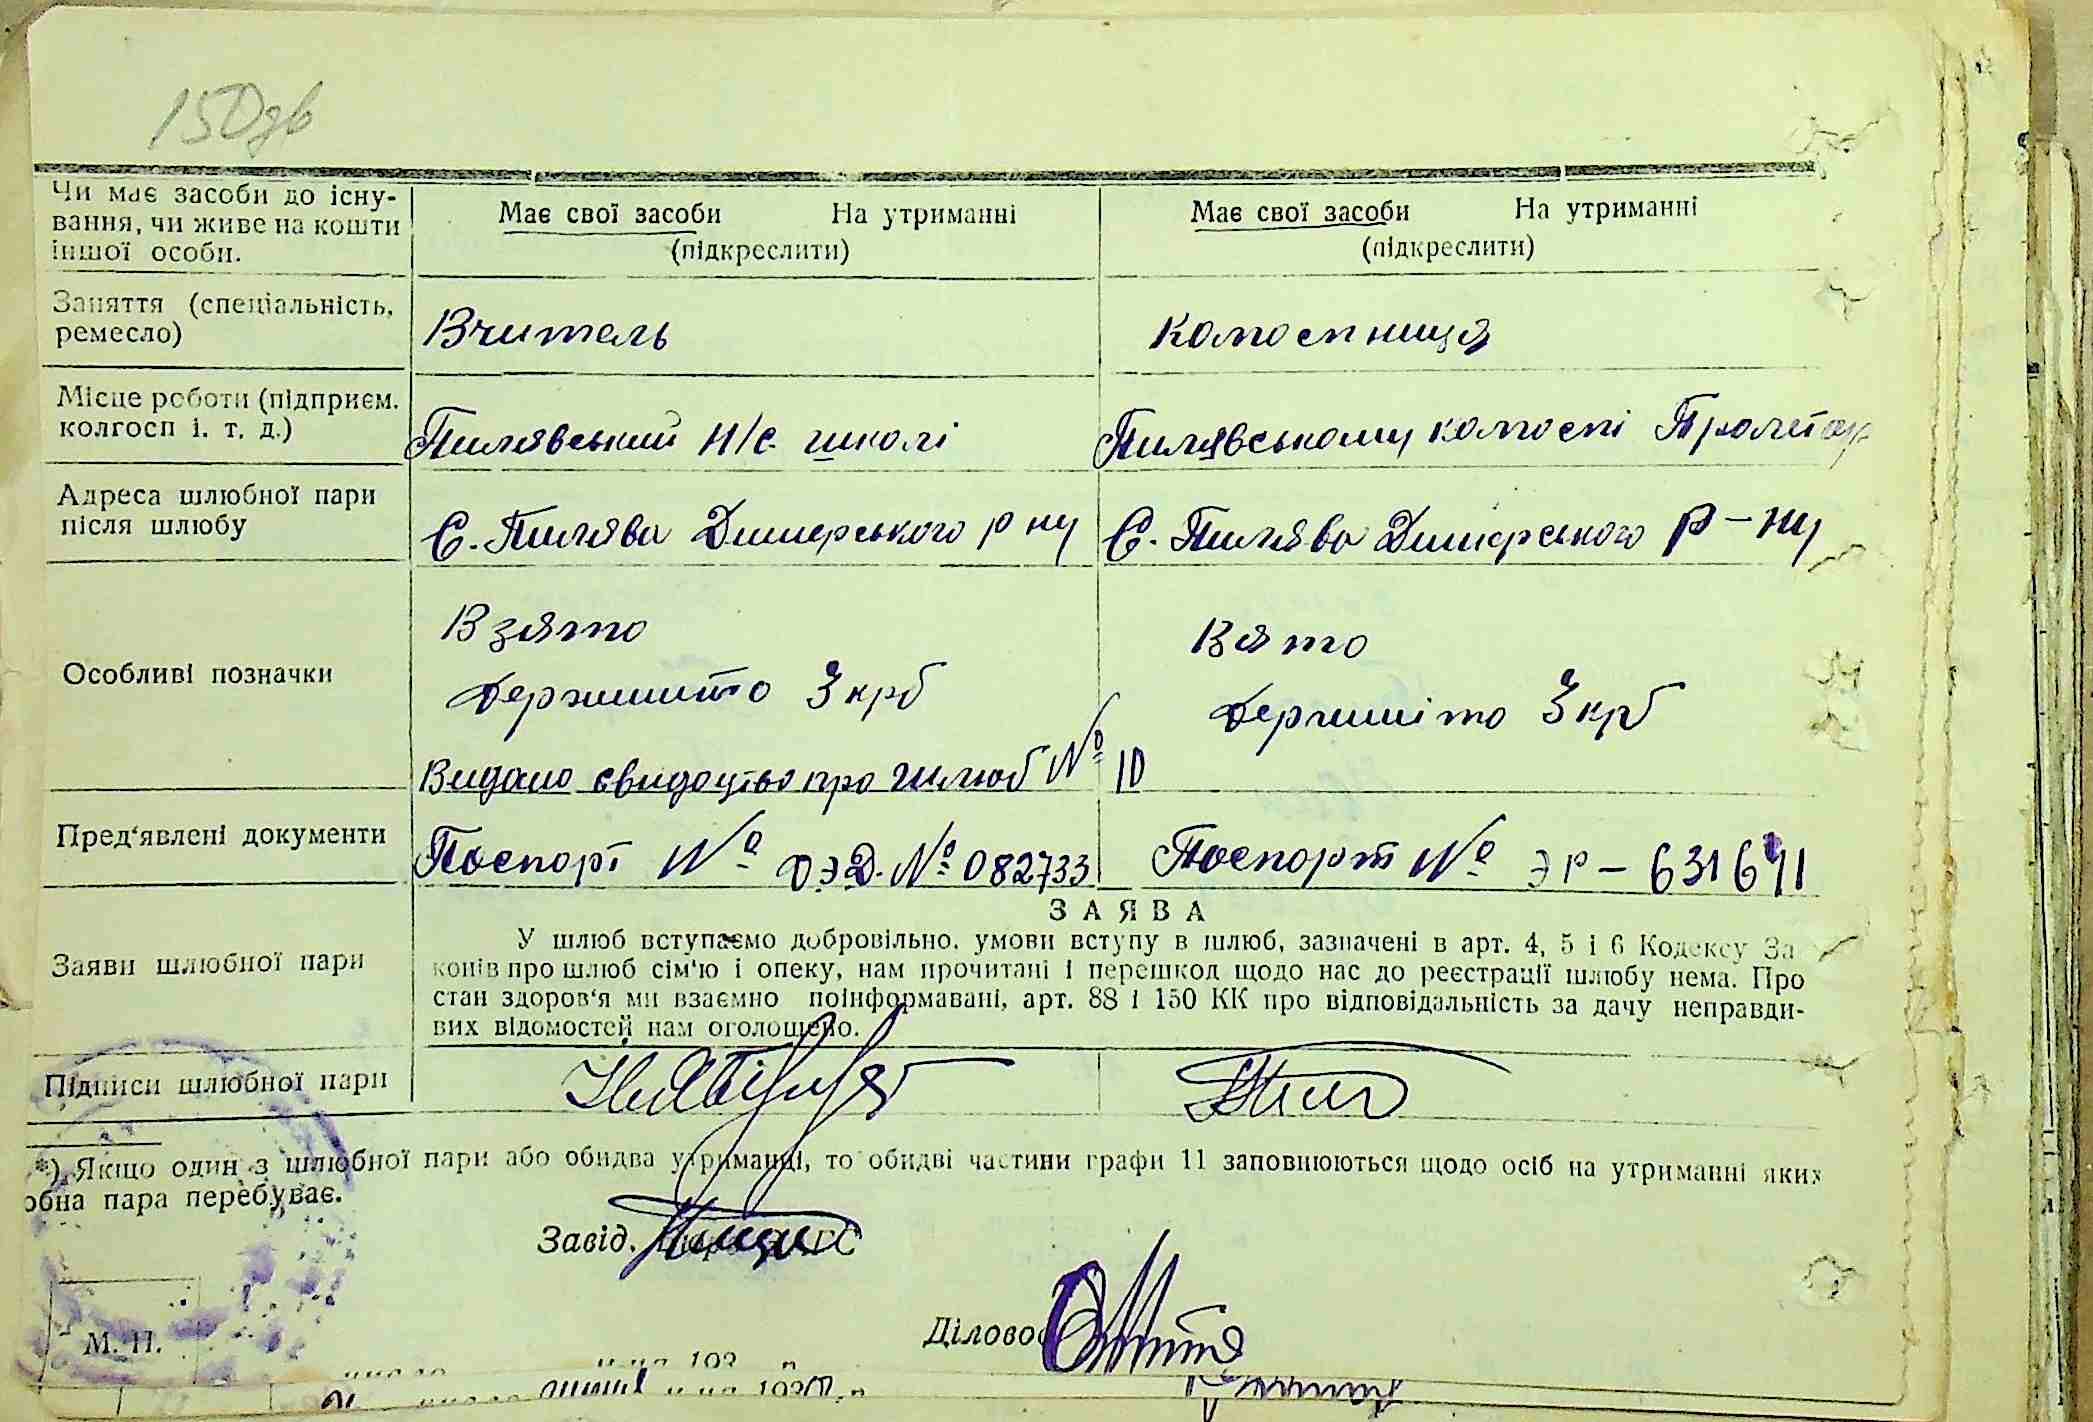 150 зв
Чи має засоби до існу-
вання, чи живе на кошти
іншої особи.
Має свої засоби На утриманні
(підкреслити)
Має свої засоби На утриманні
(підкреслити)
Заняття (спеціальність,
ремесло)
Вчитель
Колгоспниця
Місце роботи (підприєм.
колгосп і. т. д.)
Пилявський н/с. школі
Пилявському колгоспі Пролетар
Адреса шлюбної пари
після шлюбу
С. Пилява Димерського р ну
С. Пилява Димерського р-ну
Особливі позначки
Взято
держмито 3 крб
Видано свидоцтво про шлюб № 10
Взято
держмито 3 крб
Пред'явлені документи
Паспорт № ОЭД. № 082733
Паспорт № ЭР - 631611
ЗАЯВА
Заяви шлюбної пари
У шлюб вступаємо добровільно. умови вступу в шлюб, зазначені в арт. 4, 5 і 6 Кодексу За
конів про шлюб сім'ю і опеку, нам прочитані і перешкод щодо нас до реєстрації шлюбу нема. Про
стан здоров'я ми взаємно поінформавані, арт. 88 і 150 КК про відповідальність за дачу неправди-
вих відомостей нам оголошено.
Підписи шлюбної пари
*) Якщо один з шлюбної пари або обидва утриманці, то обидві частини графи 11 заповнюються щодо осіб на утриманні яких
обна пара перебуває.
Завід.
Діловод
М. П.